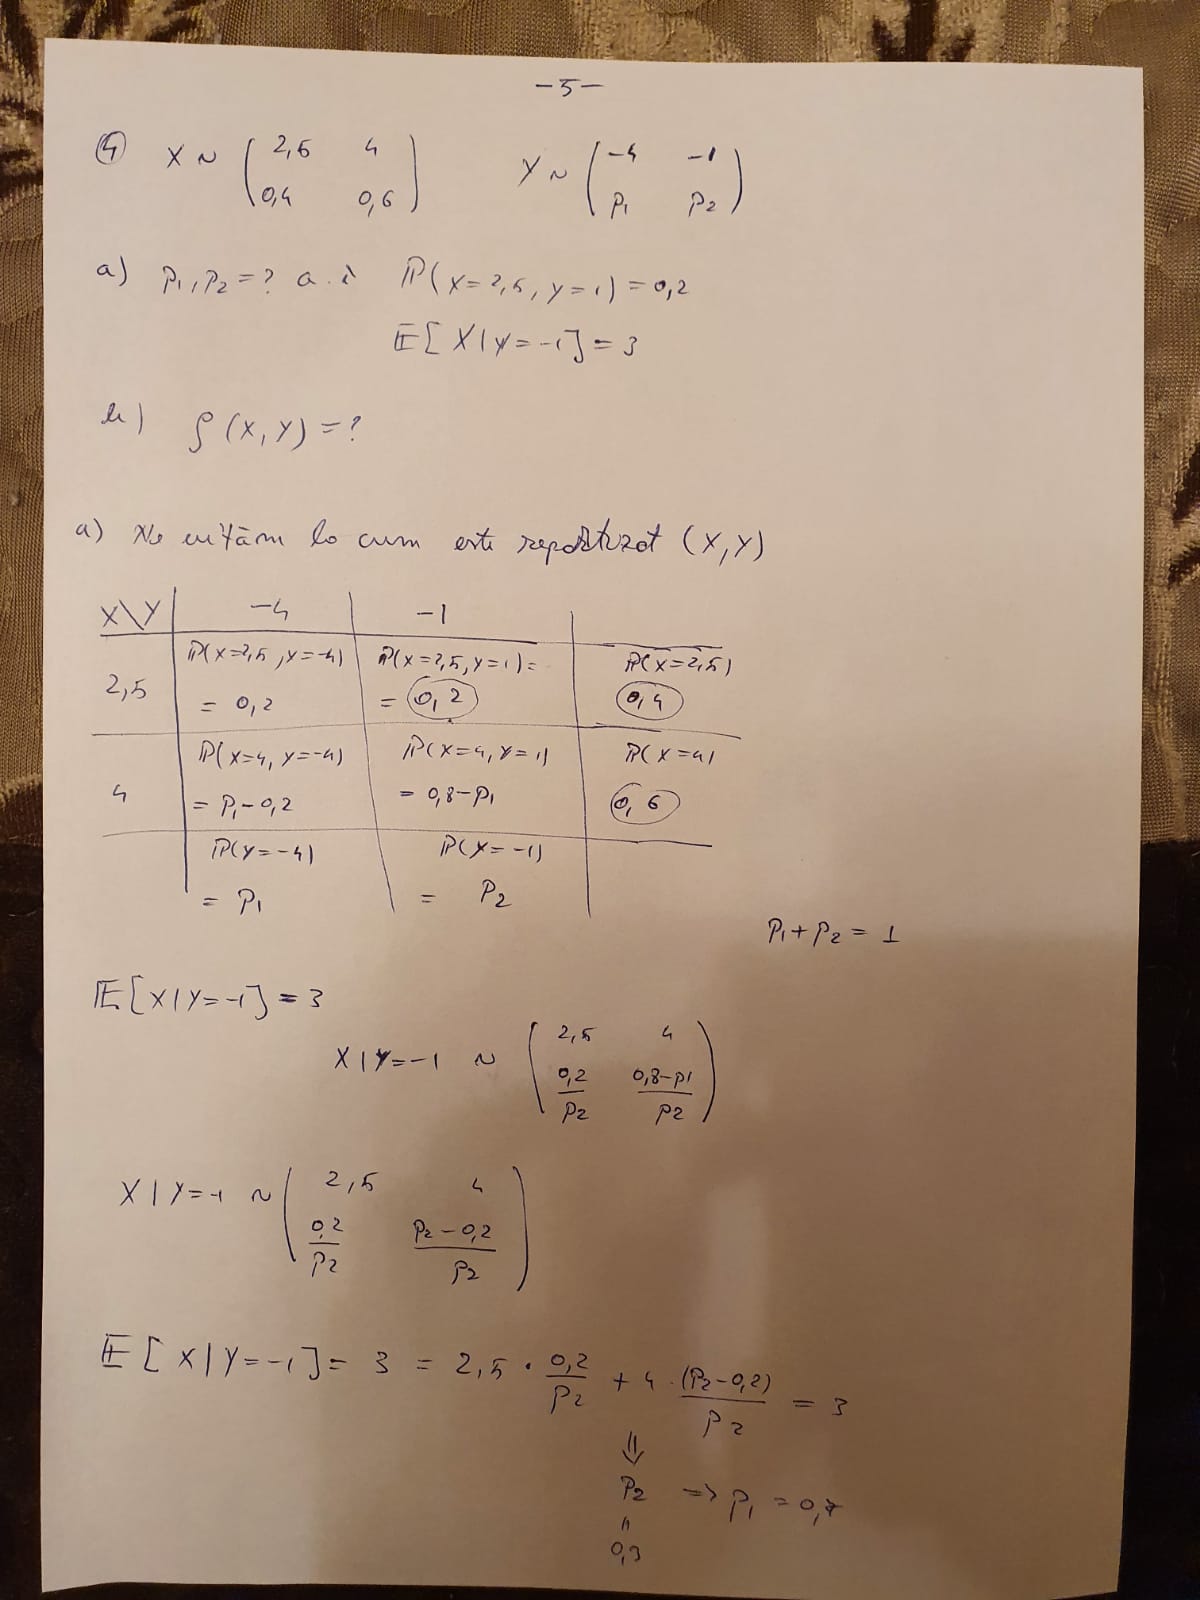 -5-
④ X ~ ( 2,5 4 ) Y ~ ( -4 -1 )
( 0,4 0,6 ) ( p1 p2 )
a) P1, P2 = ? a.î P(X=2,5, Y=1) = 0,2
E[X|Y=-1] = 3
b) ρ(X,Y) = ?
a) Ne uităm la cum este repartizat (X,Y)
X\Y -4 -1
P(X=2,5, Y=-4) P(X=2,5, Y=1)= P(X=2,5)
2,5 = 0,2 = 0,2 0,4
P(X=4, Y=-4) P(X=4, Y=1) P(X=4)
4 = P1-0,2 = 0,8-P1 0,6
P(Y=-4) P(Y=-1)
= P1 = P2
P1+P2 = 1
E[X|Y=-1] = 3
X|Y=-1 ~ ( 2,5 4 )
( 0,2/P2 0,8-p1/P2 )
X|Y=-1 ~ ( 2,5 4 )
( 0,2/P2 P2-0,2/P2 )
E[X|Y=-1] = 3 = 2,5 · 0,2/P2 + 4 · (P2-0,2)/P2 = 3
⇓
P2 => P1 = 0,7
=
0,3